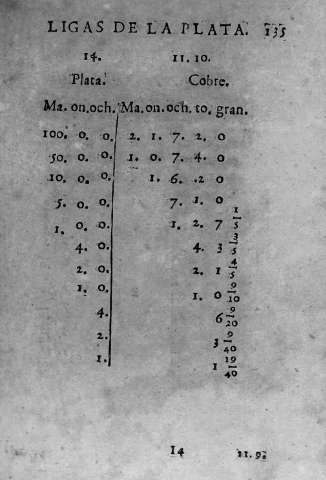 LIGAS DE LA PLATA. 135
14. 11. 10.
Plata. Cobre.
Ma. on. och. Ma. on. och. to. gran.
100. 0. 0. 2. 1. 7. 2. 0
50. 0. 0. 1. 0. 7. 4. 0
10. 0. 0. 1. 6. .2 0
5. 0. 0. 7. 1. 0
1. 0. 0. 1. 2. 7 1/5
4. 0. 4. 3 3/5
2. 0. 2. 1 4/5
1. 0. 1. 0 9/10
4. 6 9/20
2. 3 9/40
1. 1 19/40
14 11. 9.